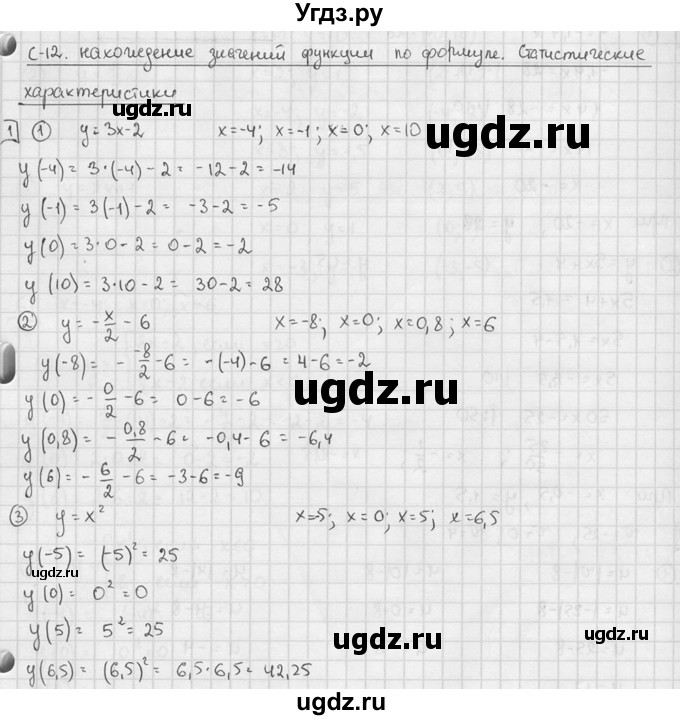 Угдз.ру
С-12. нахождение значений функции по формуле. Статистические
характеристики
1 ① y = 3x - 2 x = -4; x = -1; x = 0; x = 10
ugdz.ru
y(-4) = 3·(-4) - 2 = -12 - 2 = -14
y(-1) = 3(-1) - 2 = -3 - 2 = -5
y(0) = 3·0 - 2 = 0 - 2 = -2
y(10) = 3·10 - 2 = 30 - 2 = 28
② y = -x/2 - 6 x = -8; x = 0; x = 0,8; x = 6
y(-8) = - -8/2 - 6 = -(-4) - 6 = 4 - 6 = -2
ugdz.ru
ugdz.ru
y(0) = -0/2 - 6 = 0 - 6 = -6
y(0,8) = -0,8/2 - 6 = -0,4 - 6 = -6,4
y(6) = -6/2 - 6 = -3 - 6 = -9
③ y = x² x = -5; x = 0; x = 5; x = 6,5
y(-5) = (-5)² = 25
ugdz.ru
y(0) = 0² = 0
y(5) = 5² = 25
ugdz.ru
y(6,5) = (6,5)² = 6,5·6,5 = 42,25
ugdz.ru